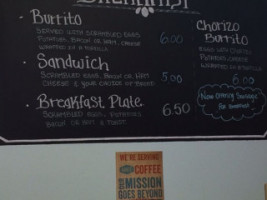 BREAKFAST
• Burrito
SERVED WITH SCRAMBLED EGGS
POTATOES, BACON OR HAM, CHEESE
WRAPPED IN A TORTILLA
6.00
• Sandwich
SCRAMBLED EGGS, BACON OR HAM
CHEESE & YOUR CHOICE OF
5.00
• Breakfast Plate
SCRAMBLED EGGS, POTATOES
BACON OR HAM & TOAST
6.50
Chorizo
Burrito
EGGS WITH CHORIZO
POTATOES, CHEESE
WRAPPED IN A TORTILLA
6.00
Now serving
for breakfast
WE'RE SERVING
COFFEE
MISSION
GOES BEYOND